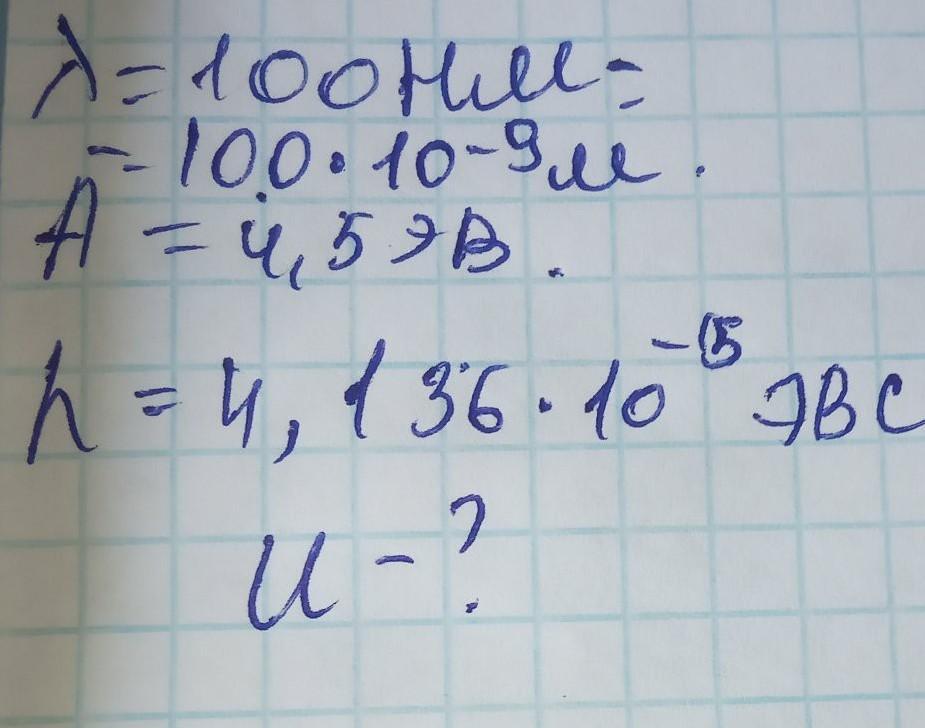 λ = 100 нм =
= 100 · 10⁻⁹ м.
A = 4,5 эВ.
h = 4,136 · 10⁻¹⁵ эВ с
U - ?